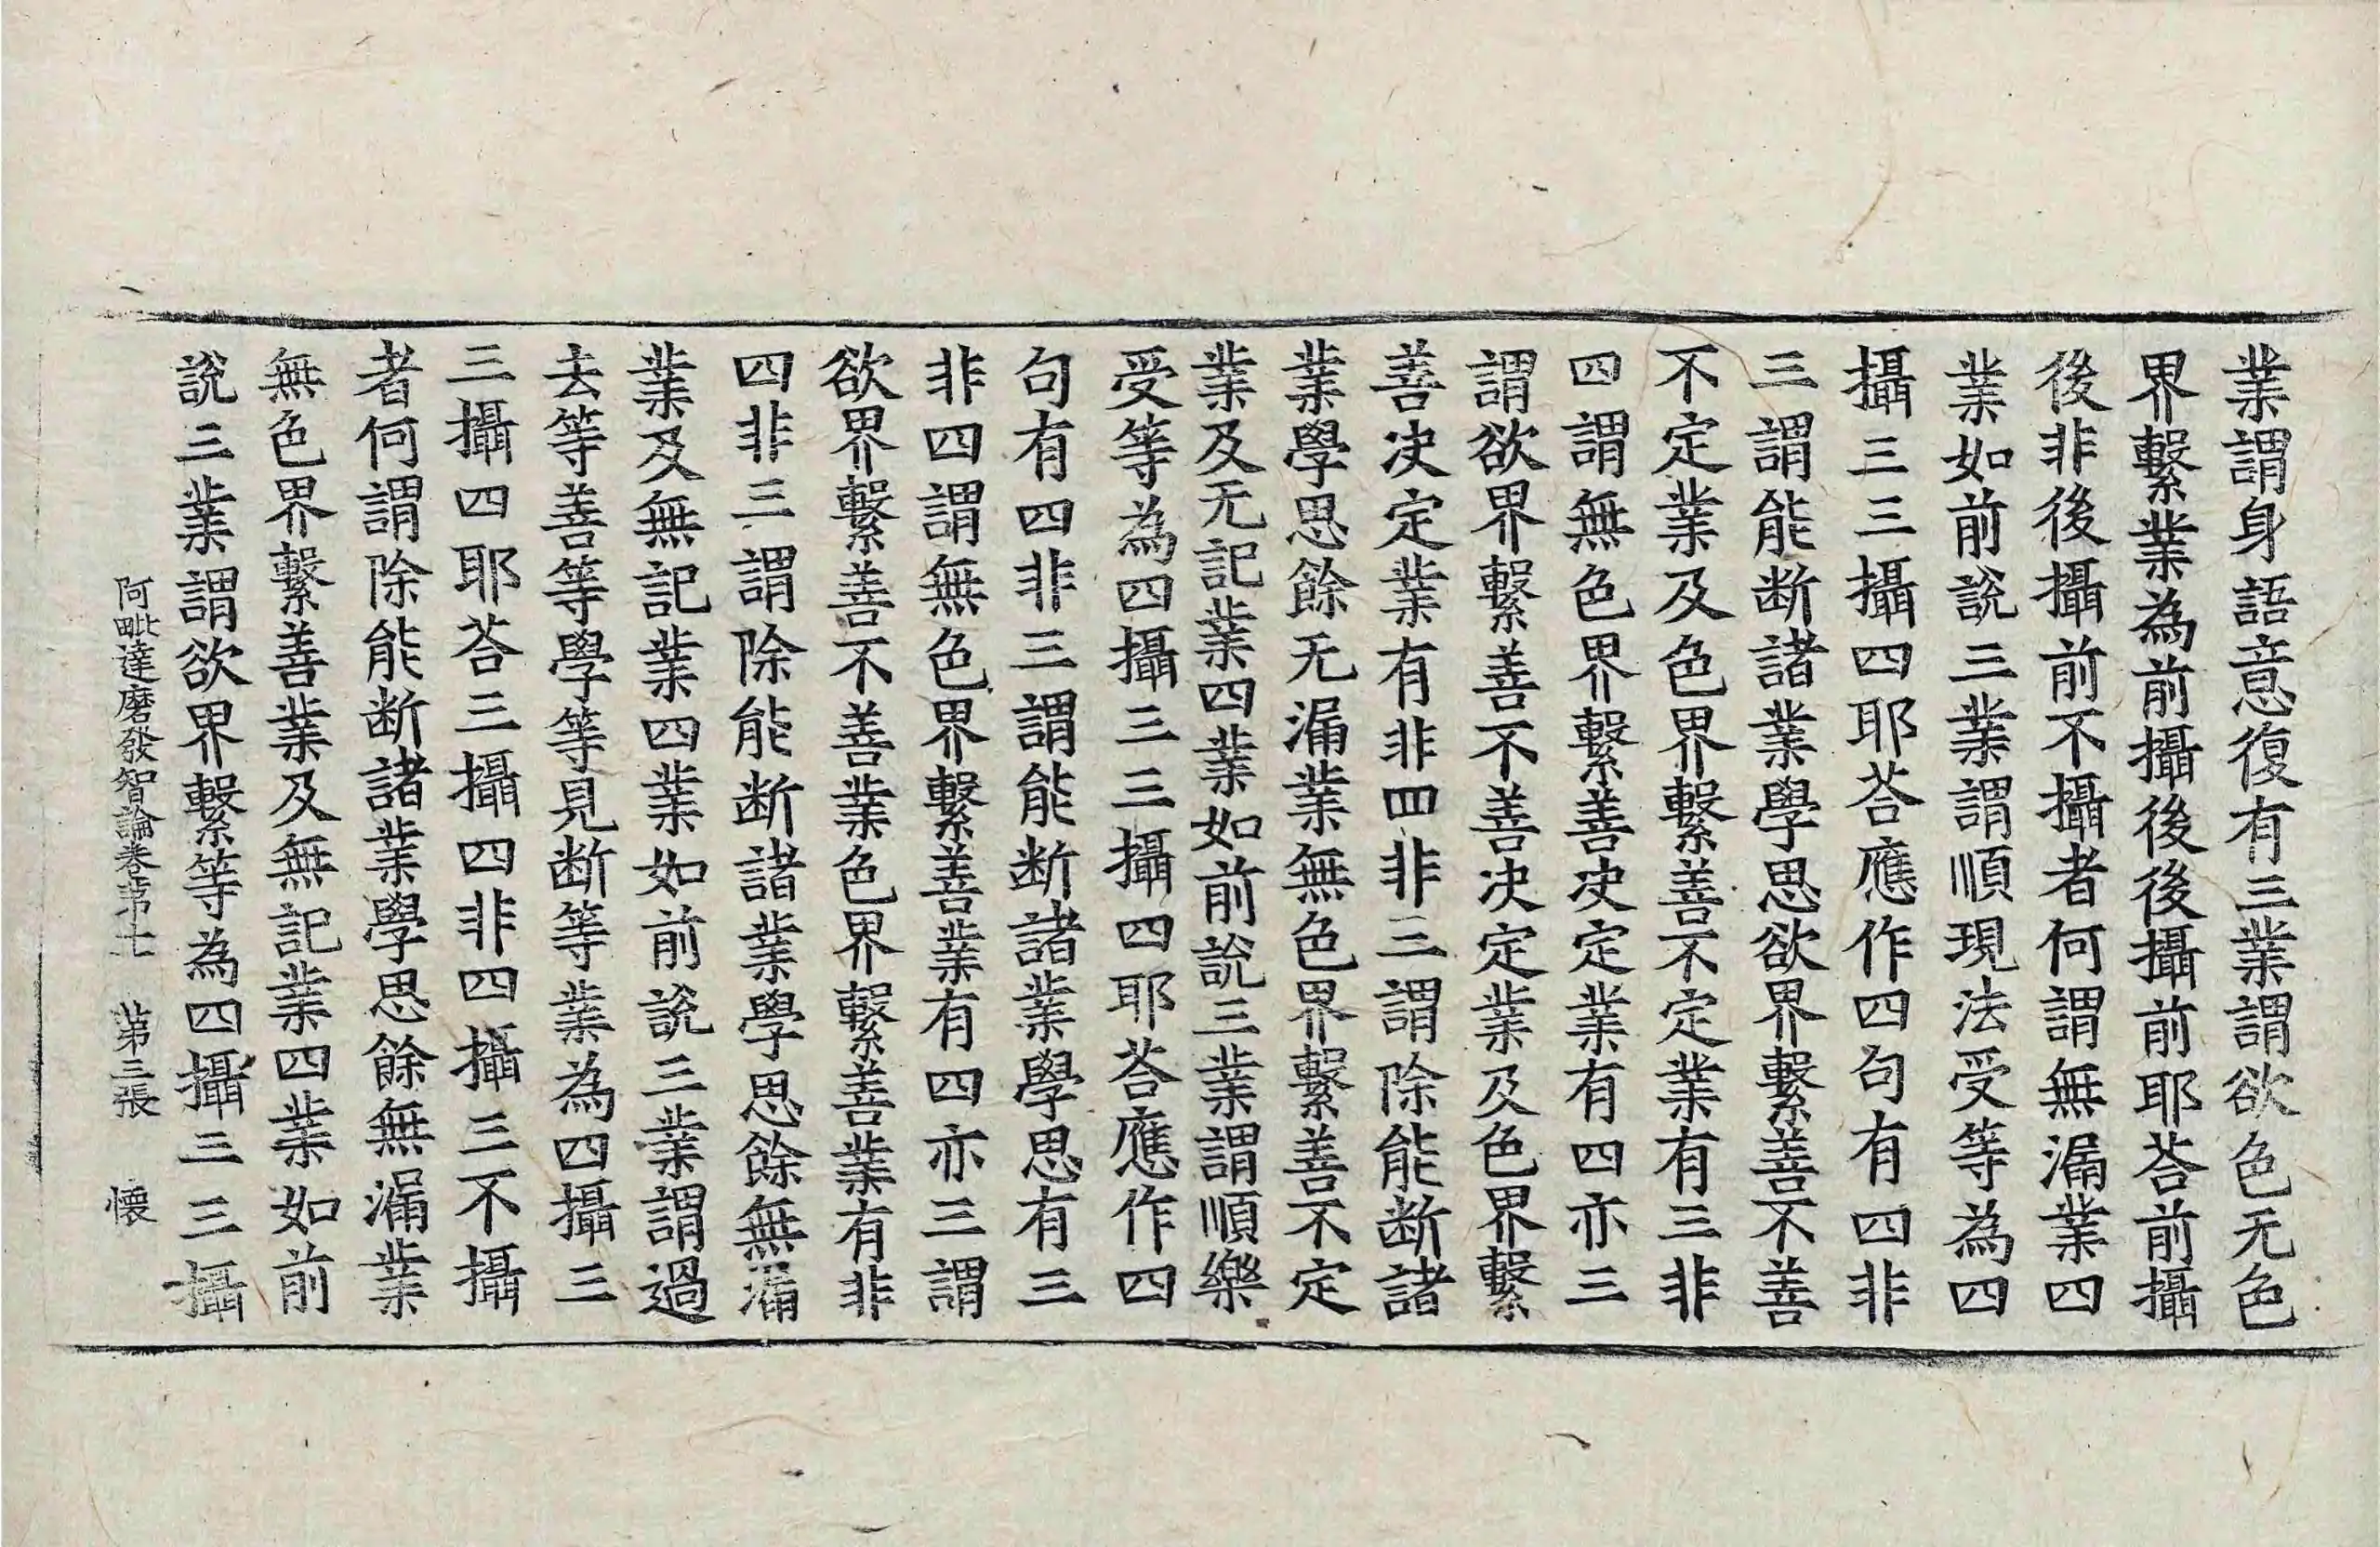 業謂身語意復有三業謂欲色无色
界繫業為前攝後後攝前耶荅前攝
後非後後攝前不攝者何謂無漏業四
業如前說三業謂順現法受等為四
攝三三攝四耶荅應作四句有四非
三謂能断諸業學思欲界繫善不善
不定業及色界繫善不定業有三非
四謂無色界繫善决定業有四亦三
謂欲界繫善不善决定業及色界繫
善决定業有非四非三謂除能断諸
業學思餘无漏業無色界繫善不定
業及无記業四業如前說三業謂順樂
受等為四攝三三攝四耶荅應作四
句有四非三謂能断諸業學思有三
非四謂無色界繫善業有四亦三謂
欲界繫善不善業色界繫善業有非
四非三謂除能断諸業學思餘無漏
業及無記業四業如前說三業謂過
去等善等學等見断等業為四攝三
三攝四耶荅三攝四非四攝三不攝
者何謂除能断諸業學思餘無漏業
無色界繫善業及無記業四業如前
說三業謂欲界繫等為四攝三三攝
阿毗達磨發智論卷苐十一 苐三張 懐